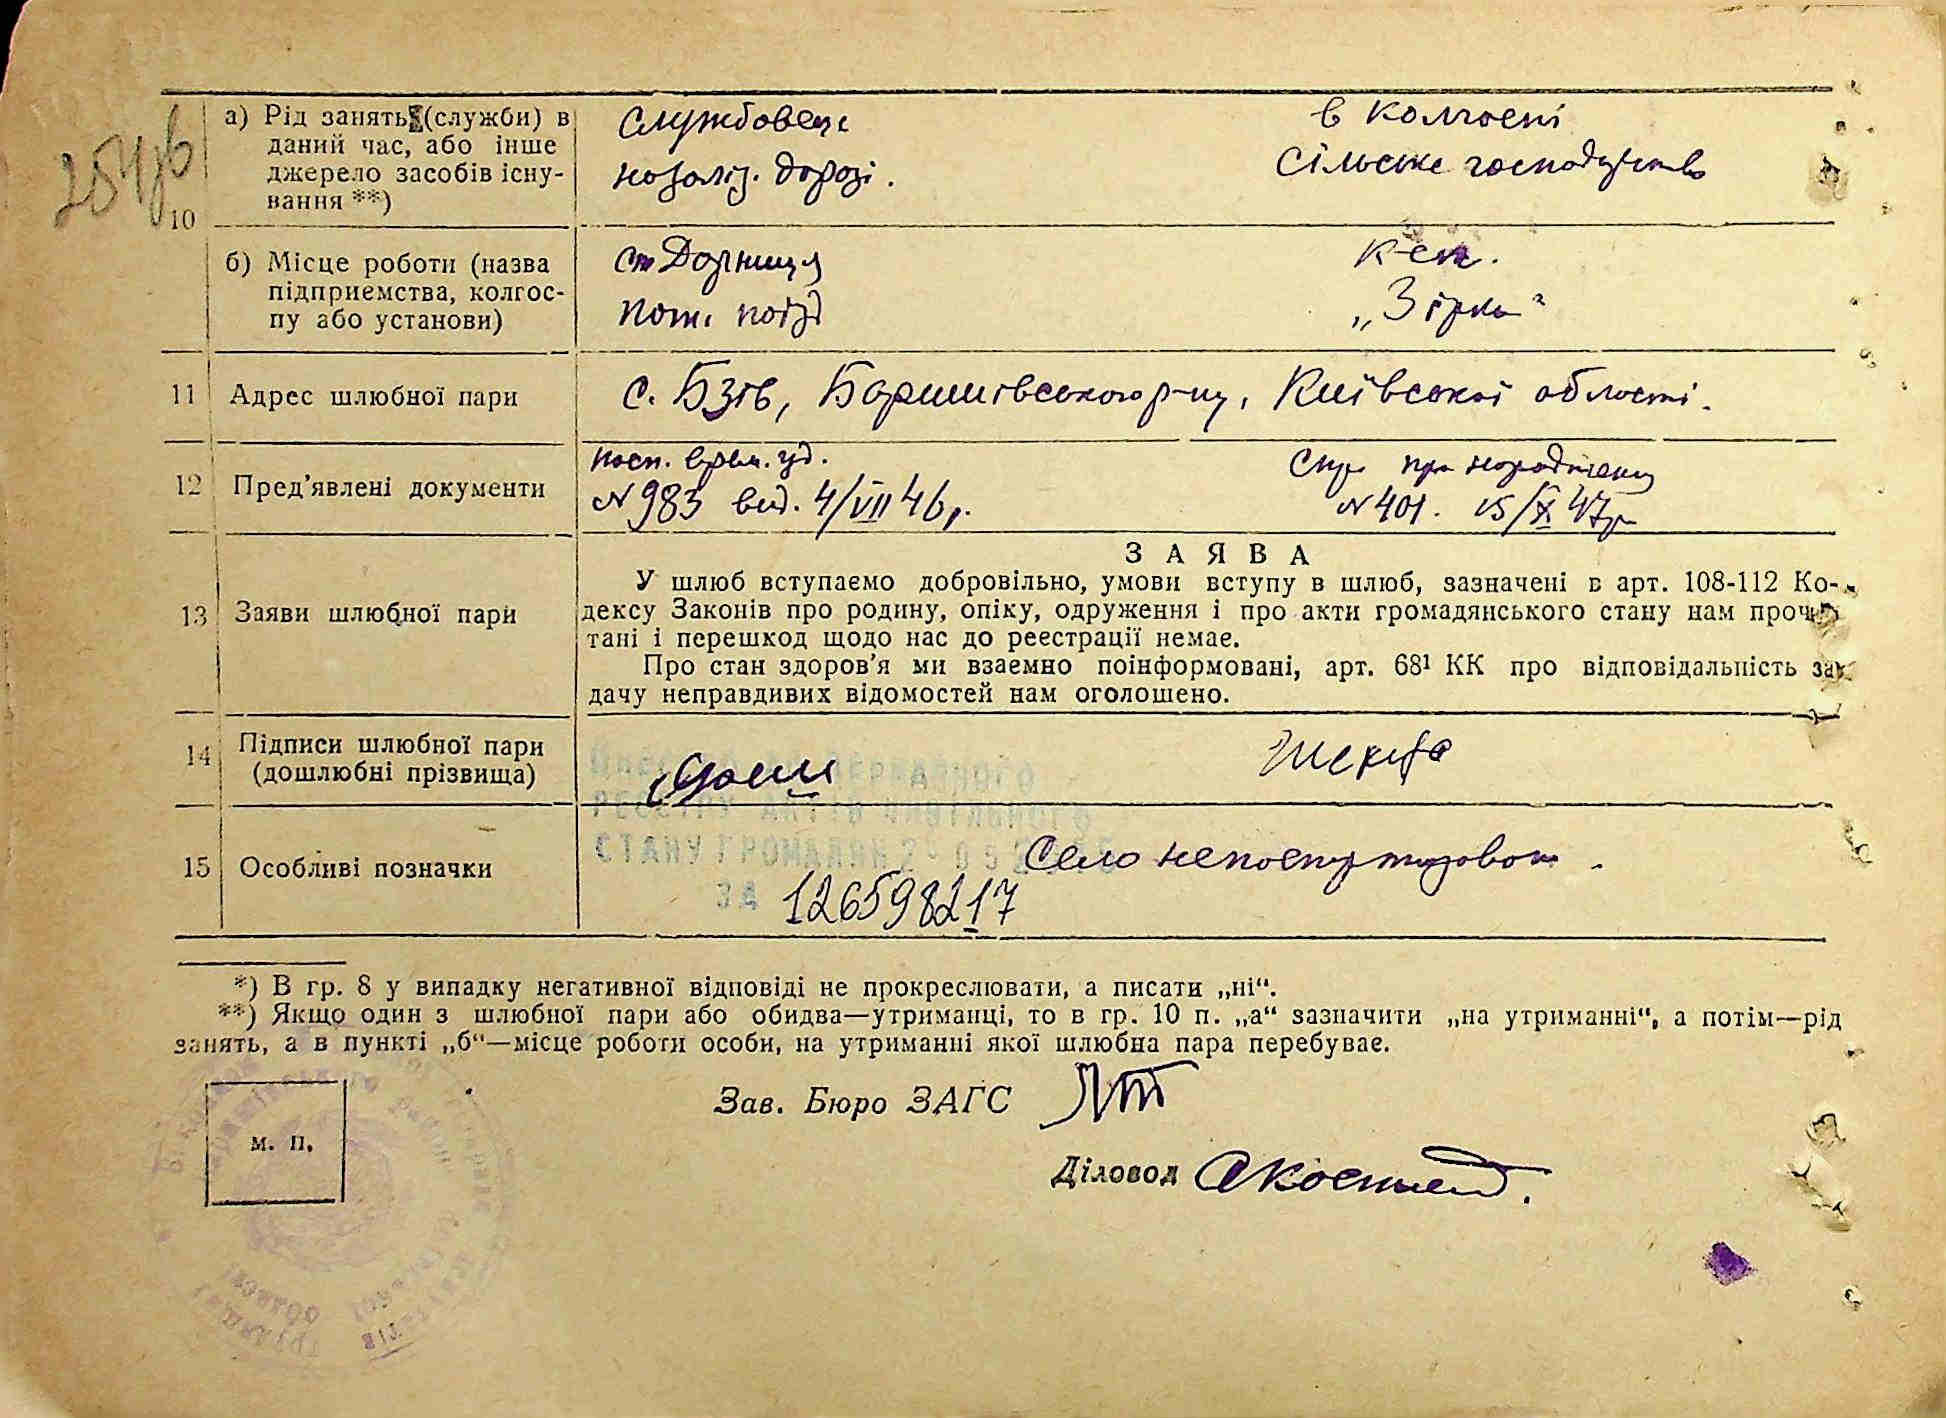 254зв
10
а) Рід занять (служби) в
даний час, або інше
джерело засобів існу-
вання **)
службовець
на заліз. дорозі.
в колгоспі
сільське господарство
б) Місце роботи (назва
підприємства, колгос-
пу або установи)
ст Дарниця
пот. поїзд
к-сп.
„Зірка"
11 Адрес шлюбної пари
с. Бзів, Баришівського р-ну, Київської області.
12 Пред'явлені документи
посп. врем. уд.
№ 983 вид. 4/VII 46 р.
про народження
№ 401. 15/X 47р
ЗАЯВА
13 Заяви шлюбної пари
У шлюб вступаємо добровільно, умови вступу в шлюб, зазначені в арт. 108-112 Ко-
дексу Законів про родину, опіку, одруження і про акти громадянського стану нам прочи-
тані і перешкод щодо нас до реєстрації немає.
Про стан здоров'я ми взаємно поінформовані, арт. 68¹ КК про відповідальність за
дачу неправдивих відомостей нам оголошено.
14 Підписи шлюбної пари
(дошлюбні прізвища)
Державного
РЕЄСТРУ АКТІВ ЦИВІЛЬНОГО
СТАНУ ГРОМАДЯН
ЗА 12659821217
15 Особливі позначки
Село непаспортизоване.
*) В гр. 8 у випадку негативної відповіді не прокреслювати, а писати „ні“.
**) Якщо один з шлюбної пари або обидва—утриманці, то в гр. 10 п. „а“ зазначити „на утриманні“, а потім—рід
занять, а в пункті „б“—місце роботи особи, на утриманні якої шлюбна пара перебуває.
Зав. Бюро ЗАГС
м. п.
Діловод